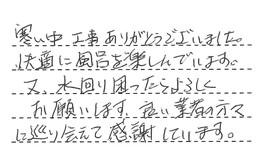 寒い中工事ありがとうございました。
快適に風呂を楽しんでいます。
又、水回り困ったらよろしく
お願いします。良い業者の方々
に巡り会えて感謝しています。